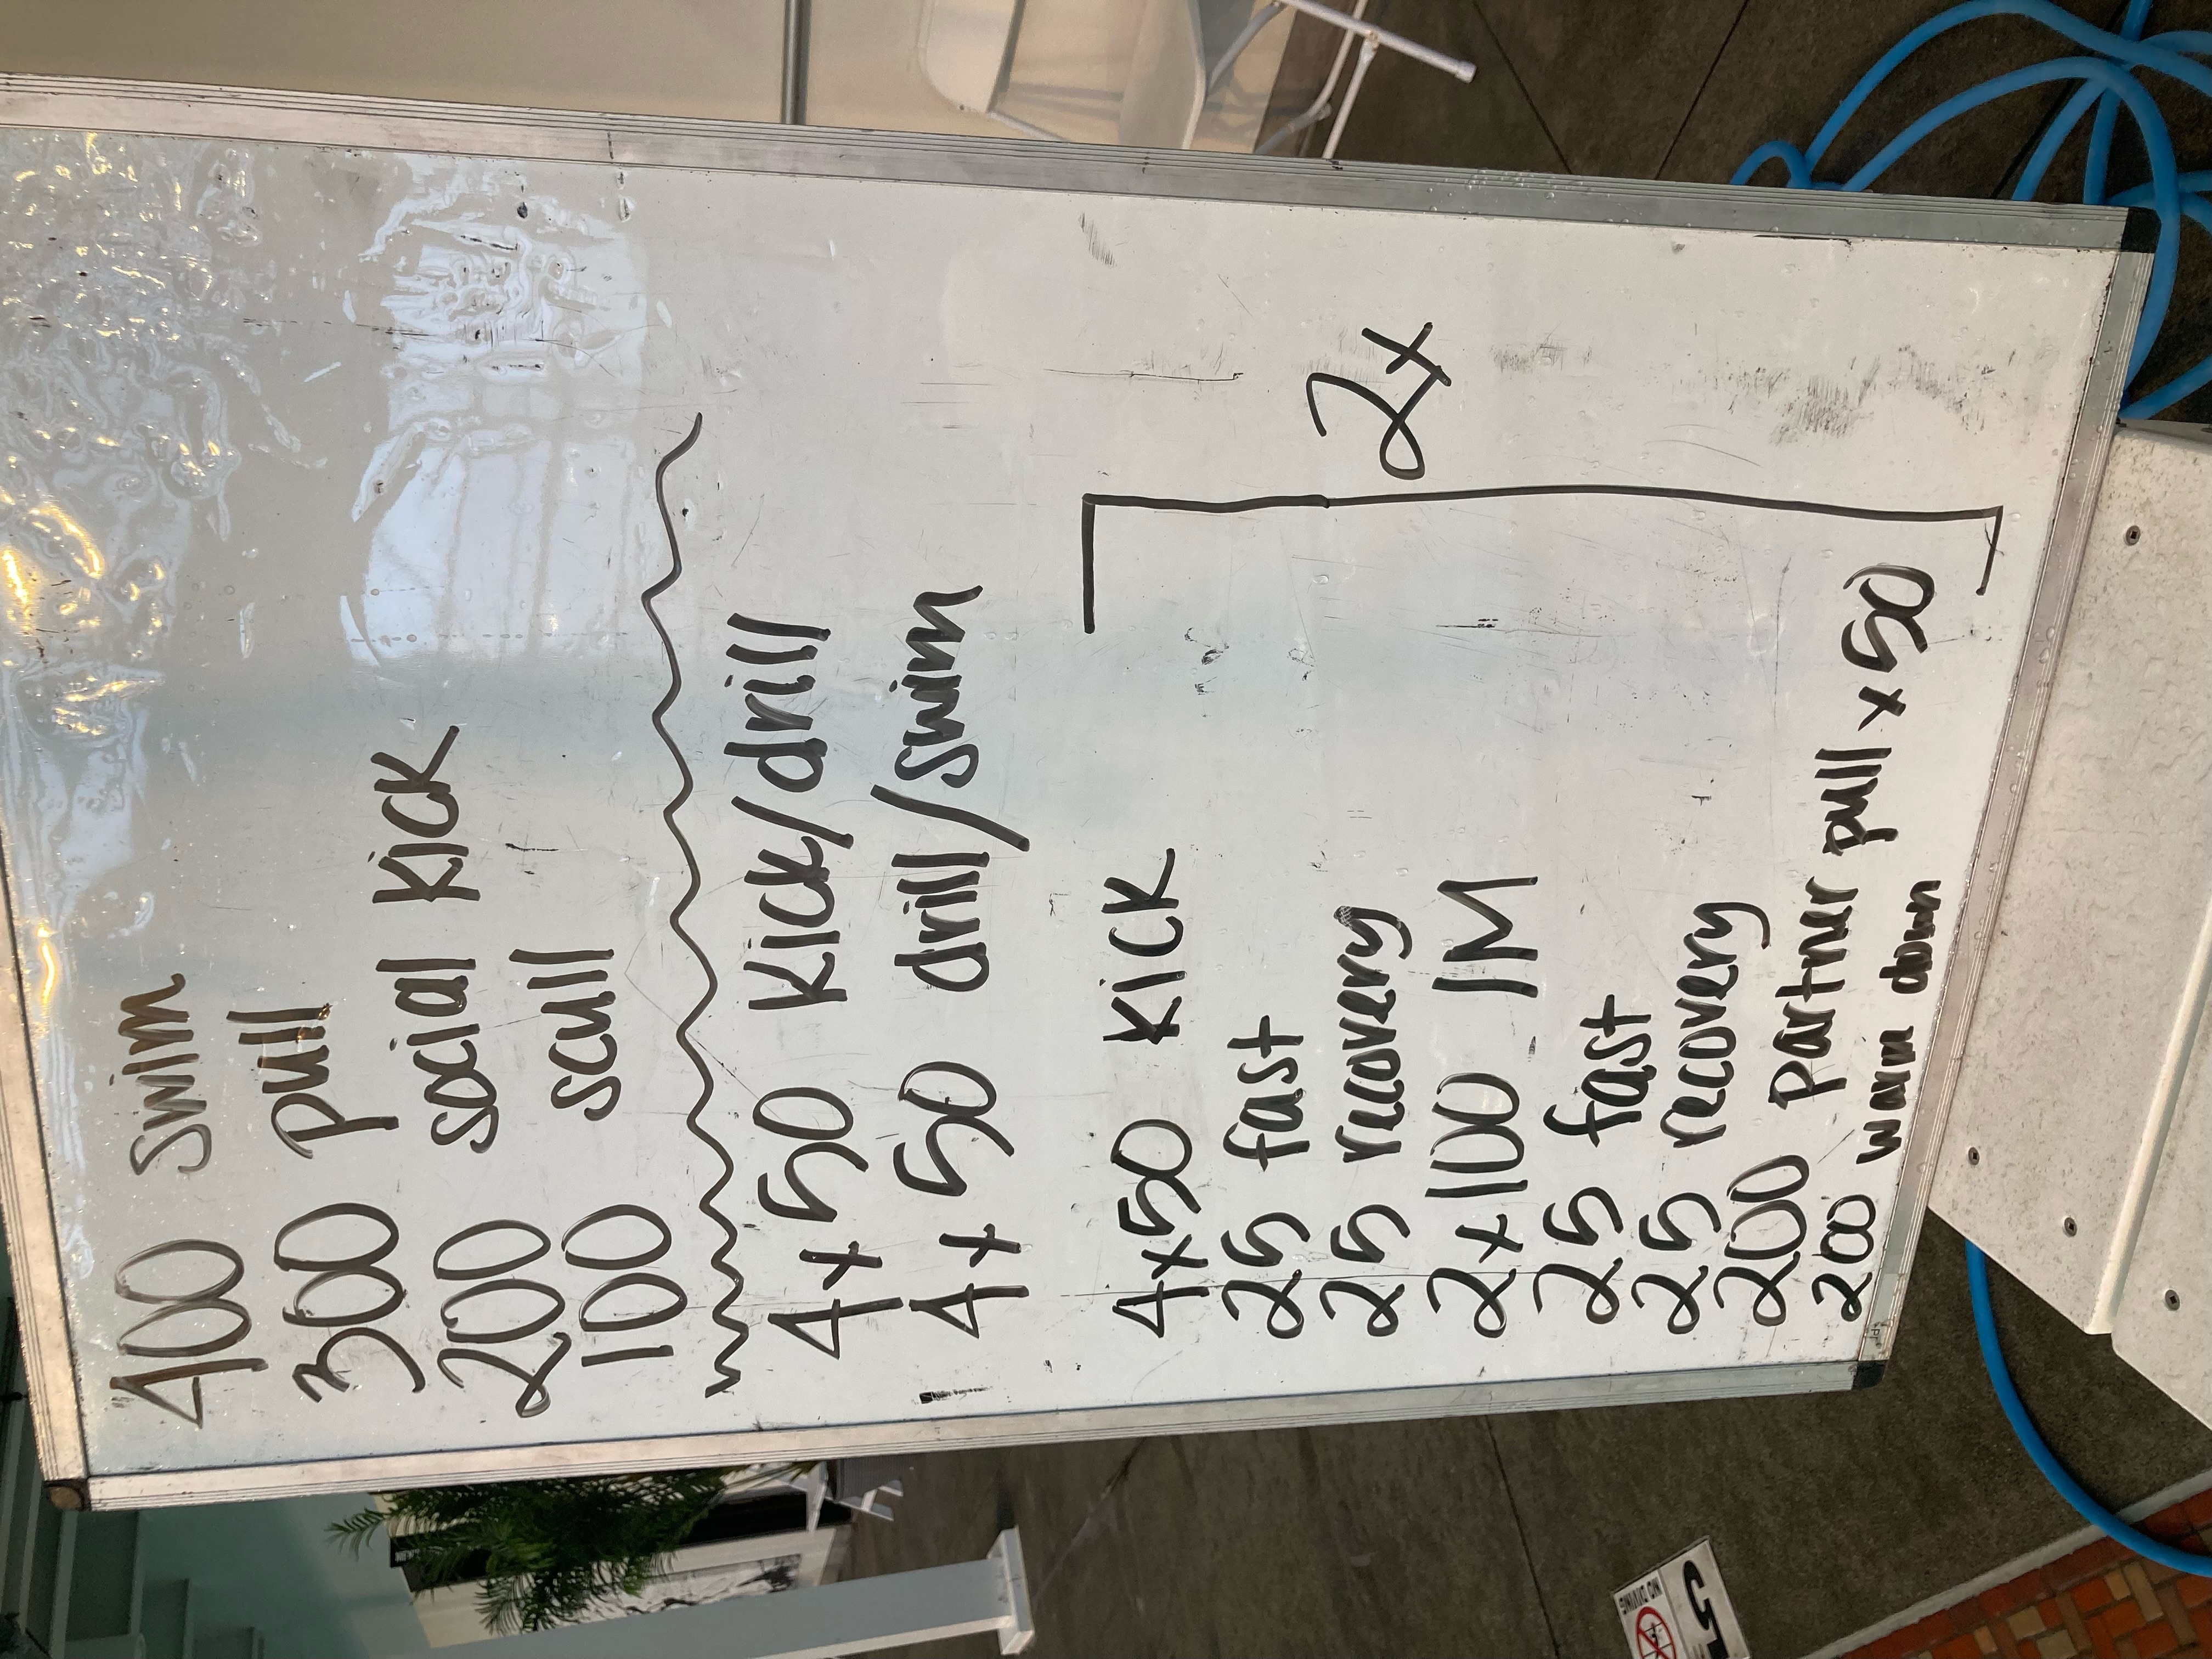 400 swim
300 pull
200 social kick
100 scull
4x50 kick/drill
4x50 drill/swim
4x50 kick
25 fast
25 recovery
2x100 IM
25 fast
25 recovery
200 partner pull x50
200 warm down
2x
NO DIVING
5